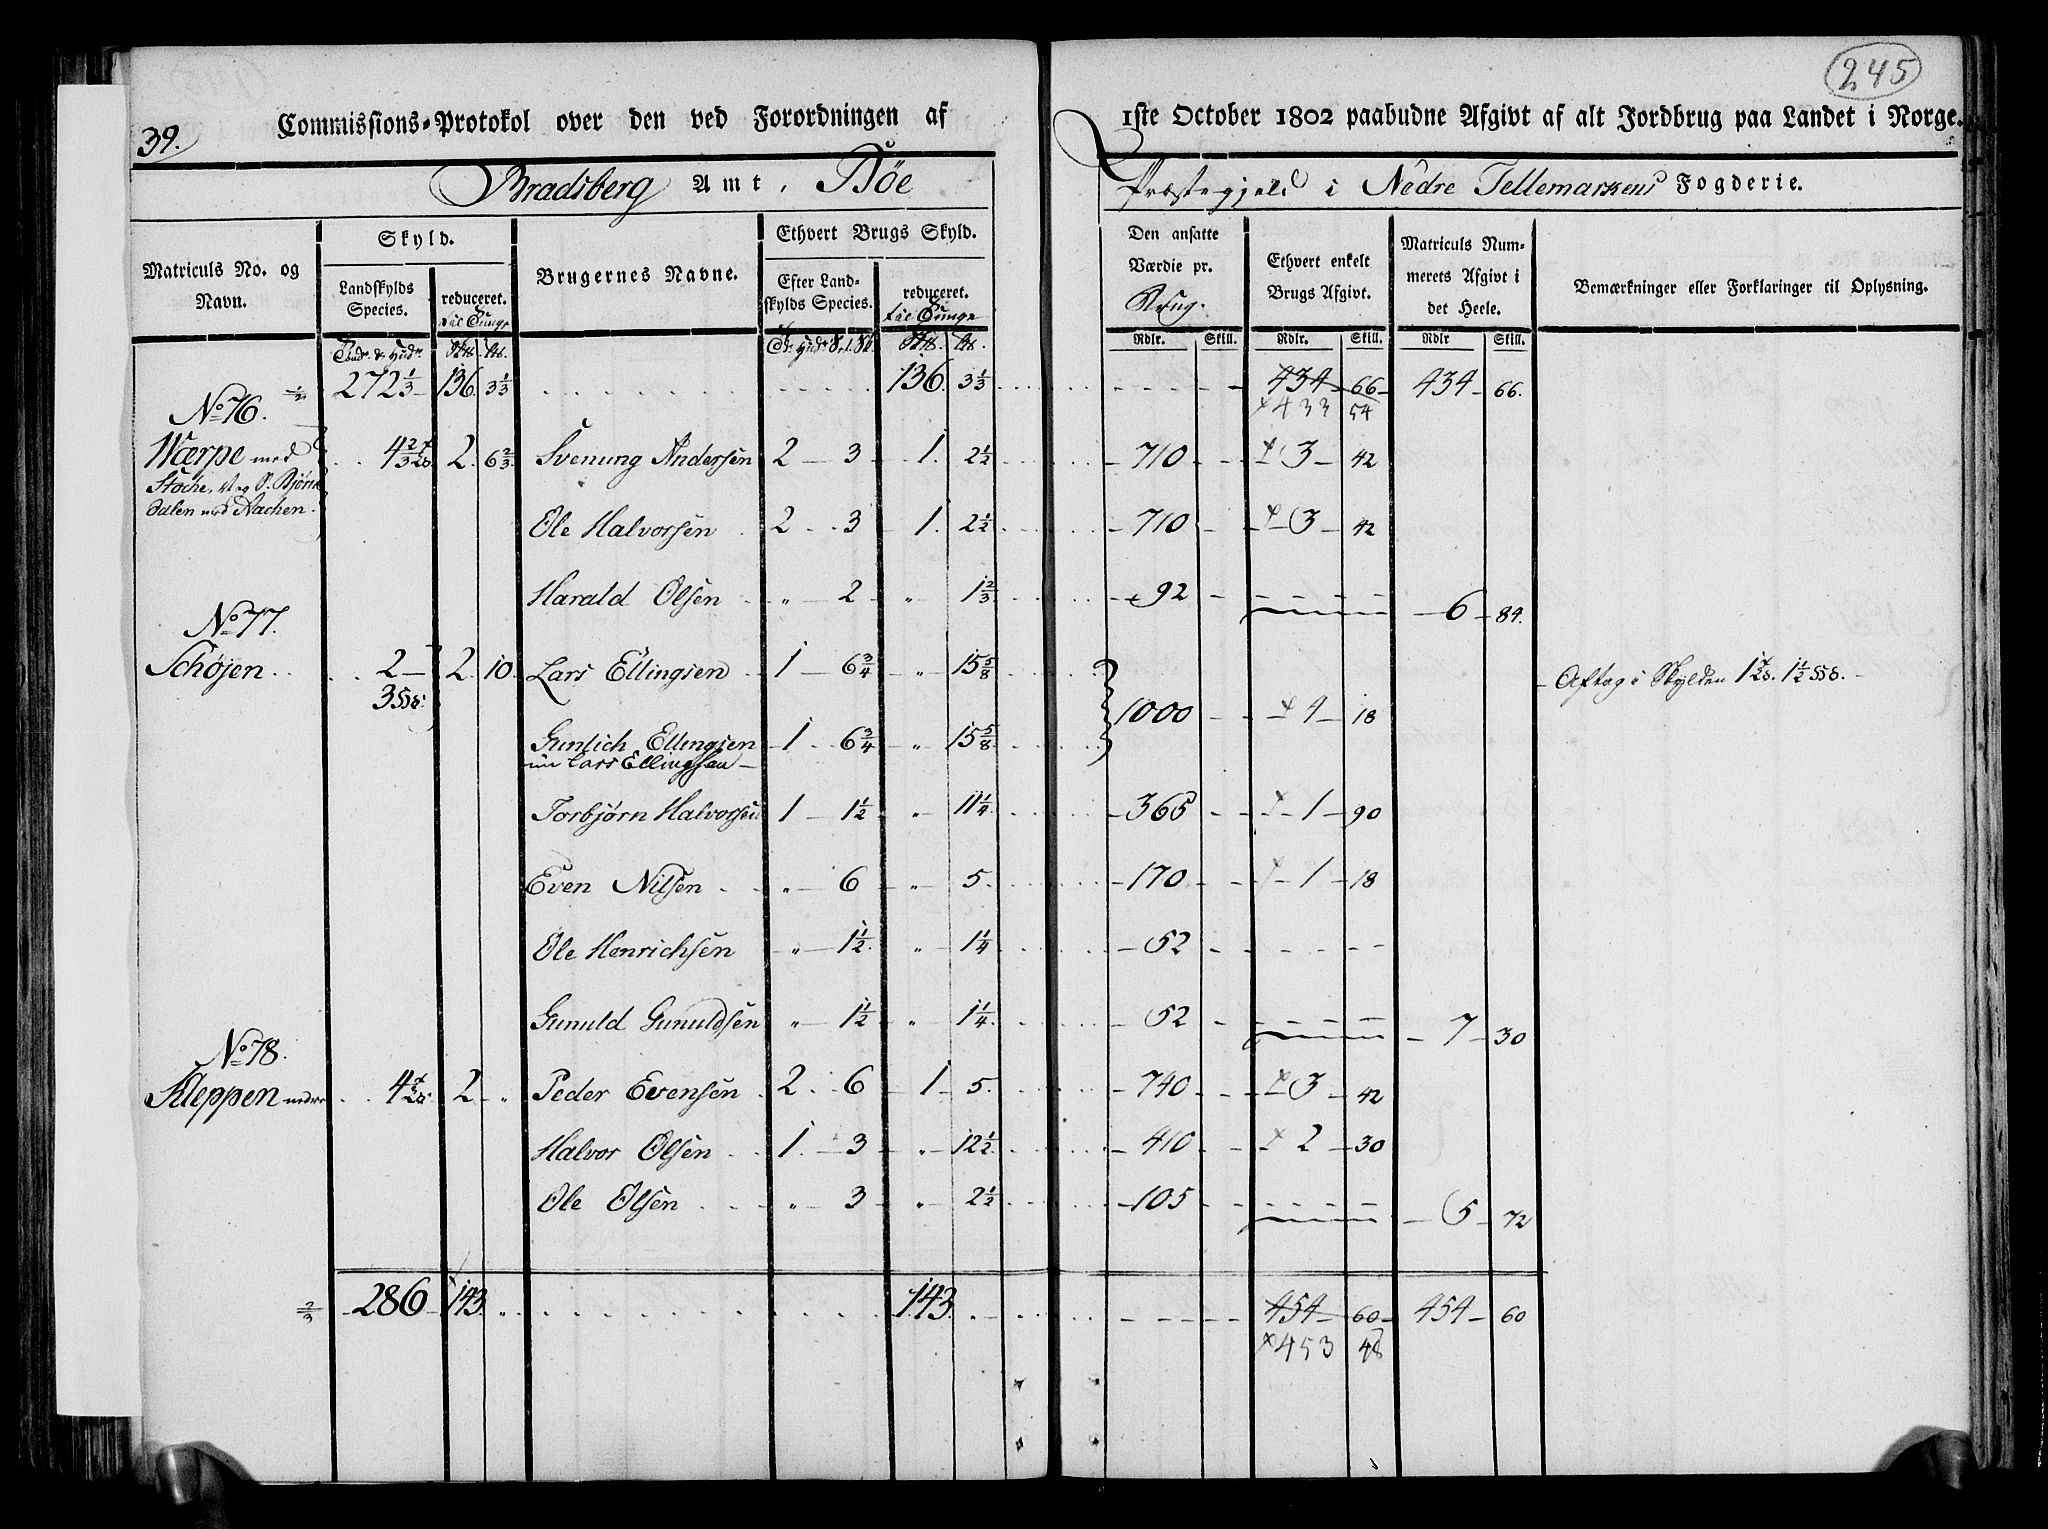 39.
245
Commissions-Protokol over den ved Forordningen af 1ste October 1802 paabudne Afgivt af alt Jordbrug paa Landet i Norge.
Bradsberg Amt, Bøe Præstegjeld i Nedre Tellemarkens Fogderie.
Matriculs No. og Navn.
Skyld.
Landskylds Species.
reduceret.
Brugernes Navne.
Ethvert Brugs Skyld.
Efter Landskylds Species.
reduceret.
Den ansatte Værdie pr. Brug.
Ethvert enkelt Brugs Afgivt.
Matriculs Nummerets Afgivt i det Heele.
Bemærkninger eller Forklaringer til Oplysning.
Rdlr. Skill. Rdlr. Skill. Rdlr Skill.
272 1/3 136. 3 1/3 136. 3 1/3 434 66 434 66.
433 54
No 76.
Værpe med 4 2/3 2. 6 2/3 Svenung Andersen 2 3 1. 2 1/2 710 3 42
Stoche, og Bjørndalen med Aachen.
Ole Halvorsen 2 3 1. 2 1/2 710 3 42
Harald Olsen " 2 " 1 2/3 92 6 84.
No 77.
Schøjen 2 2. 10 Lars Ellingsen 1 6 3/4 " 15 5/8 1000 4 18 Aftag i Skylden 1 1 1/2
3
Gunlich Ellingsen 1 6 3/4 " 15 5/8
nu Lars Ellingsen
Torbjørn Halvorsen 1 1 1/2 " 11 1/4 365 1 90
Even Nilsen " 6 " 5. 170 1 18
Ole Henrichsen " 1 1/2 " 1 1/4 52
Gunuld Gunuldsen " 1 1/2 " 1 1/4 52 7 30
No 78.
Kleppen nedre 4 2 " Peder Evensen 2 6 1 5. 740 3 42
Halvor Olsen 1. 3 " 12 1/2 410 2 30
Ole Olsen " 3 " 2 1/2 105 5 72
286 143. " 143. 454 60 454 60
453 48